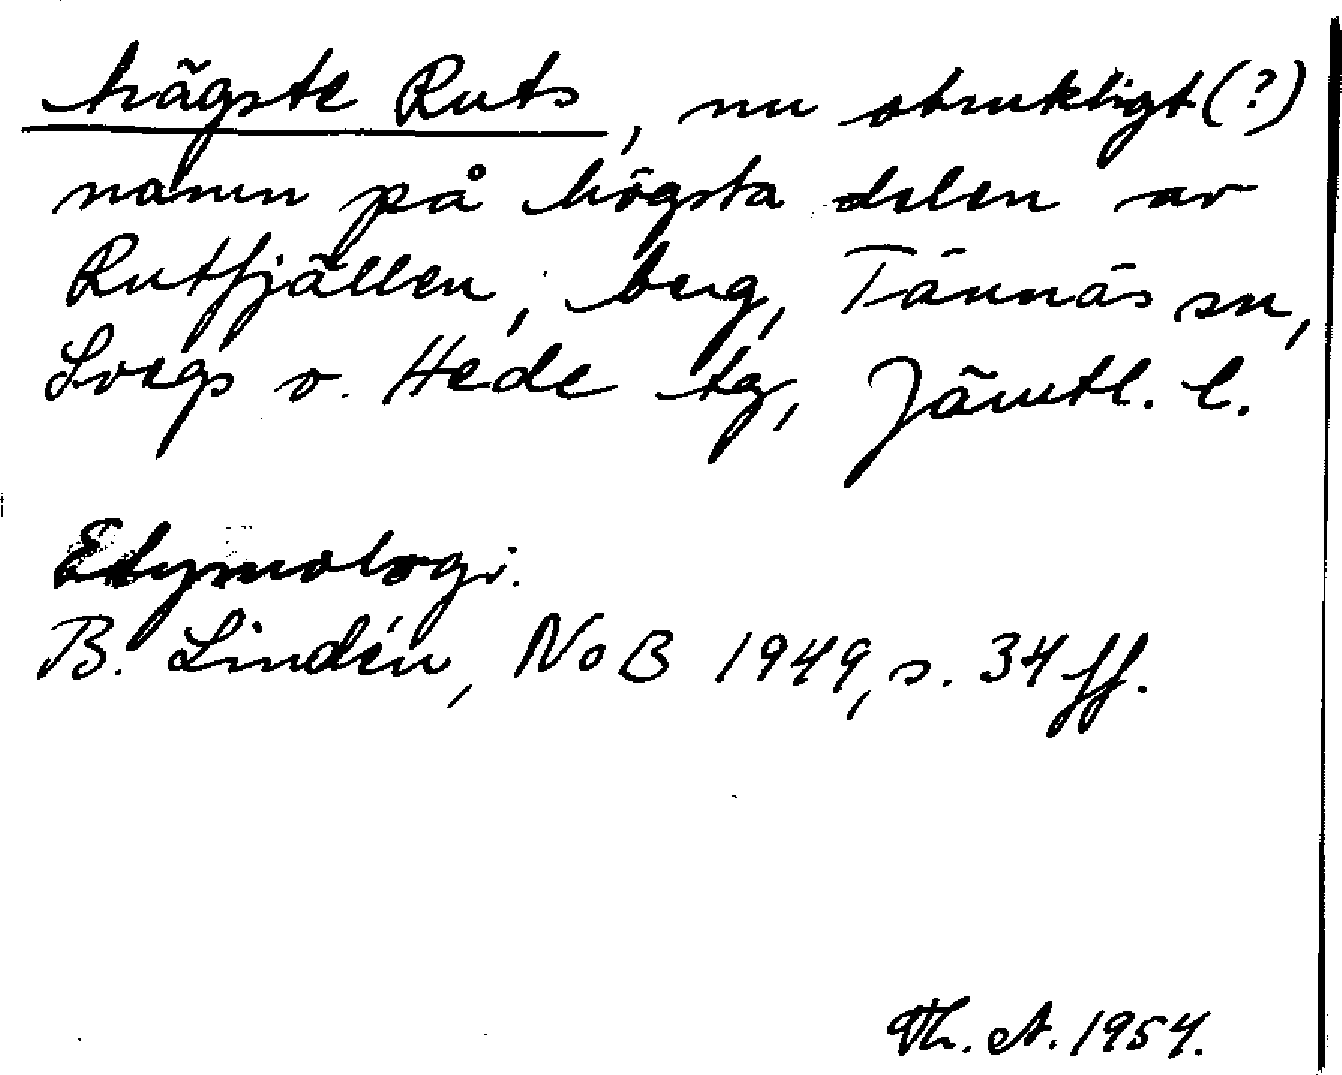 högste Ruts, nu obrukligt (?)
namn på högsta delen av
Rutfjällen, berg, Tännäs sn,
Svegs o. Hede tg, Jämtl. l.
Etymologi.
B. Lindén, NoB 1949, s. 34 ff.
Th. A. 1954.